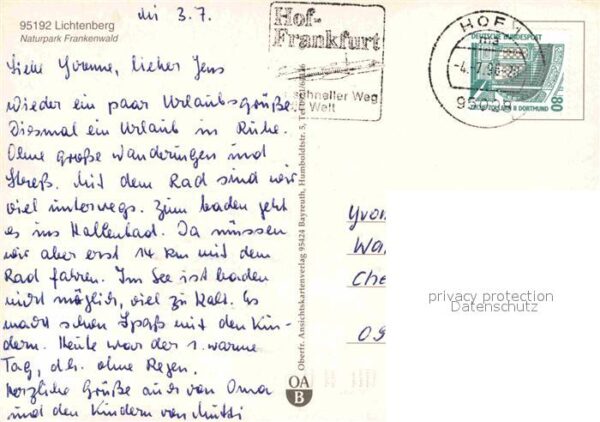 95192 Lichtenberg
Naturpark Frankenwald
Mi 3.7.
Liebe Yvonne, lieber Jens
wieder ein paar Urlaubsgrüße.
Diesmal ein Urlaub in Ruhe.
Ohne große Wanderungen und
Streß. Mit dem Rad sind wir
viel unterwegs. Zum baden geht
es ins Hallenbad. Da müssen
wir aber erst 14 km mit dem
Rad fahren. Im See ist baden
nicht möglich, viel zu kalt. Es
macht schon Spaß mit den Kin-
dern. Heute war der 1. warme
Tag, d.h. ohne Regen.
Herzliche Grüße auch von Oma
und den Kindern von Mutti
Hof-
Frankfurt
schneller Weg
Welt
HOF
95028
DEUTSCHE BUNDESPOST
DORTMUND
80
Oberfr. Ansichtskartenverlag 95424 Bayreuth, Humboldtstr. 5,
OA
B
Yvon
Wa
Che
09
privacy protection
Datenschutz